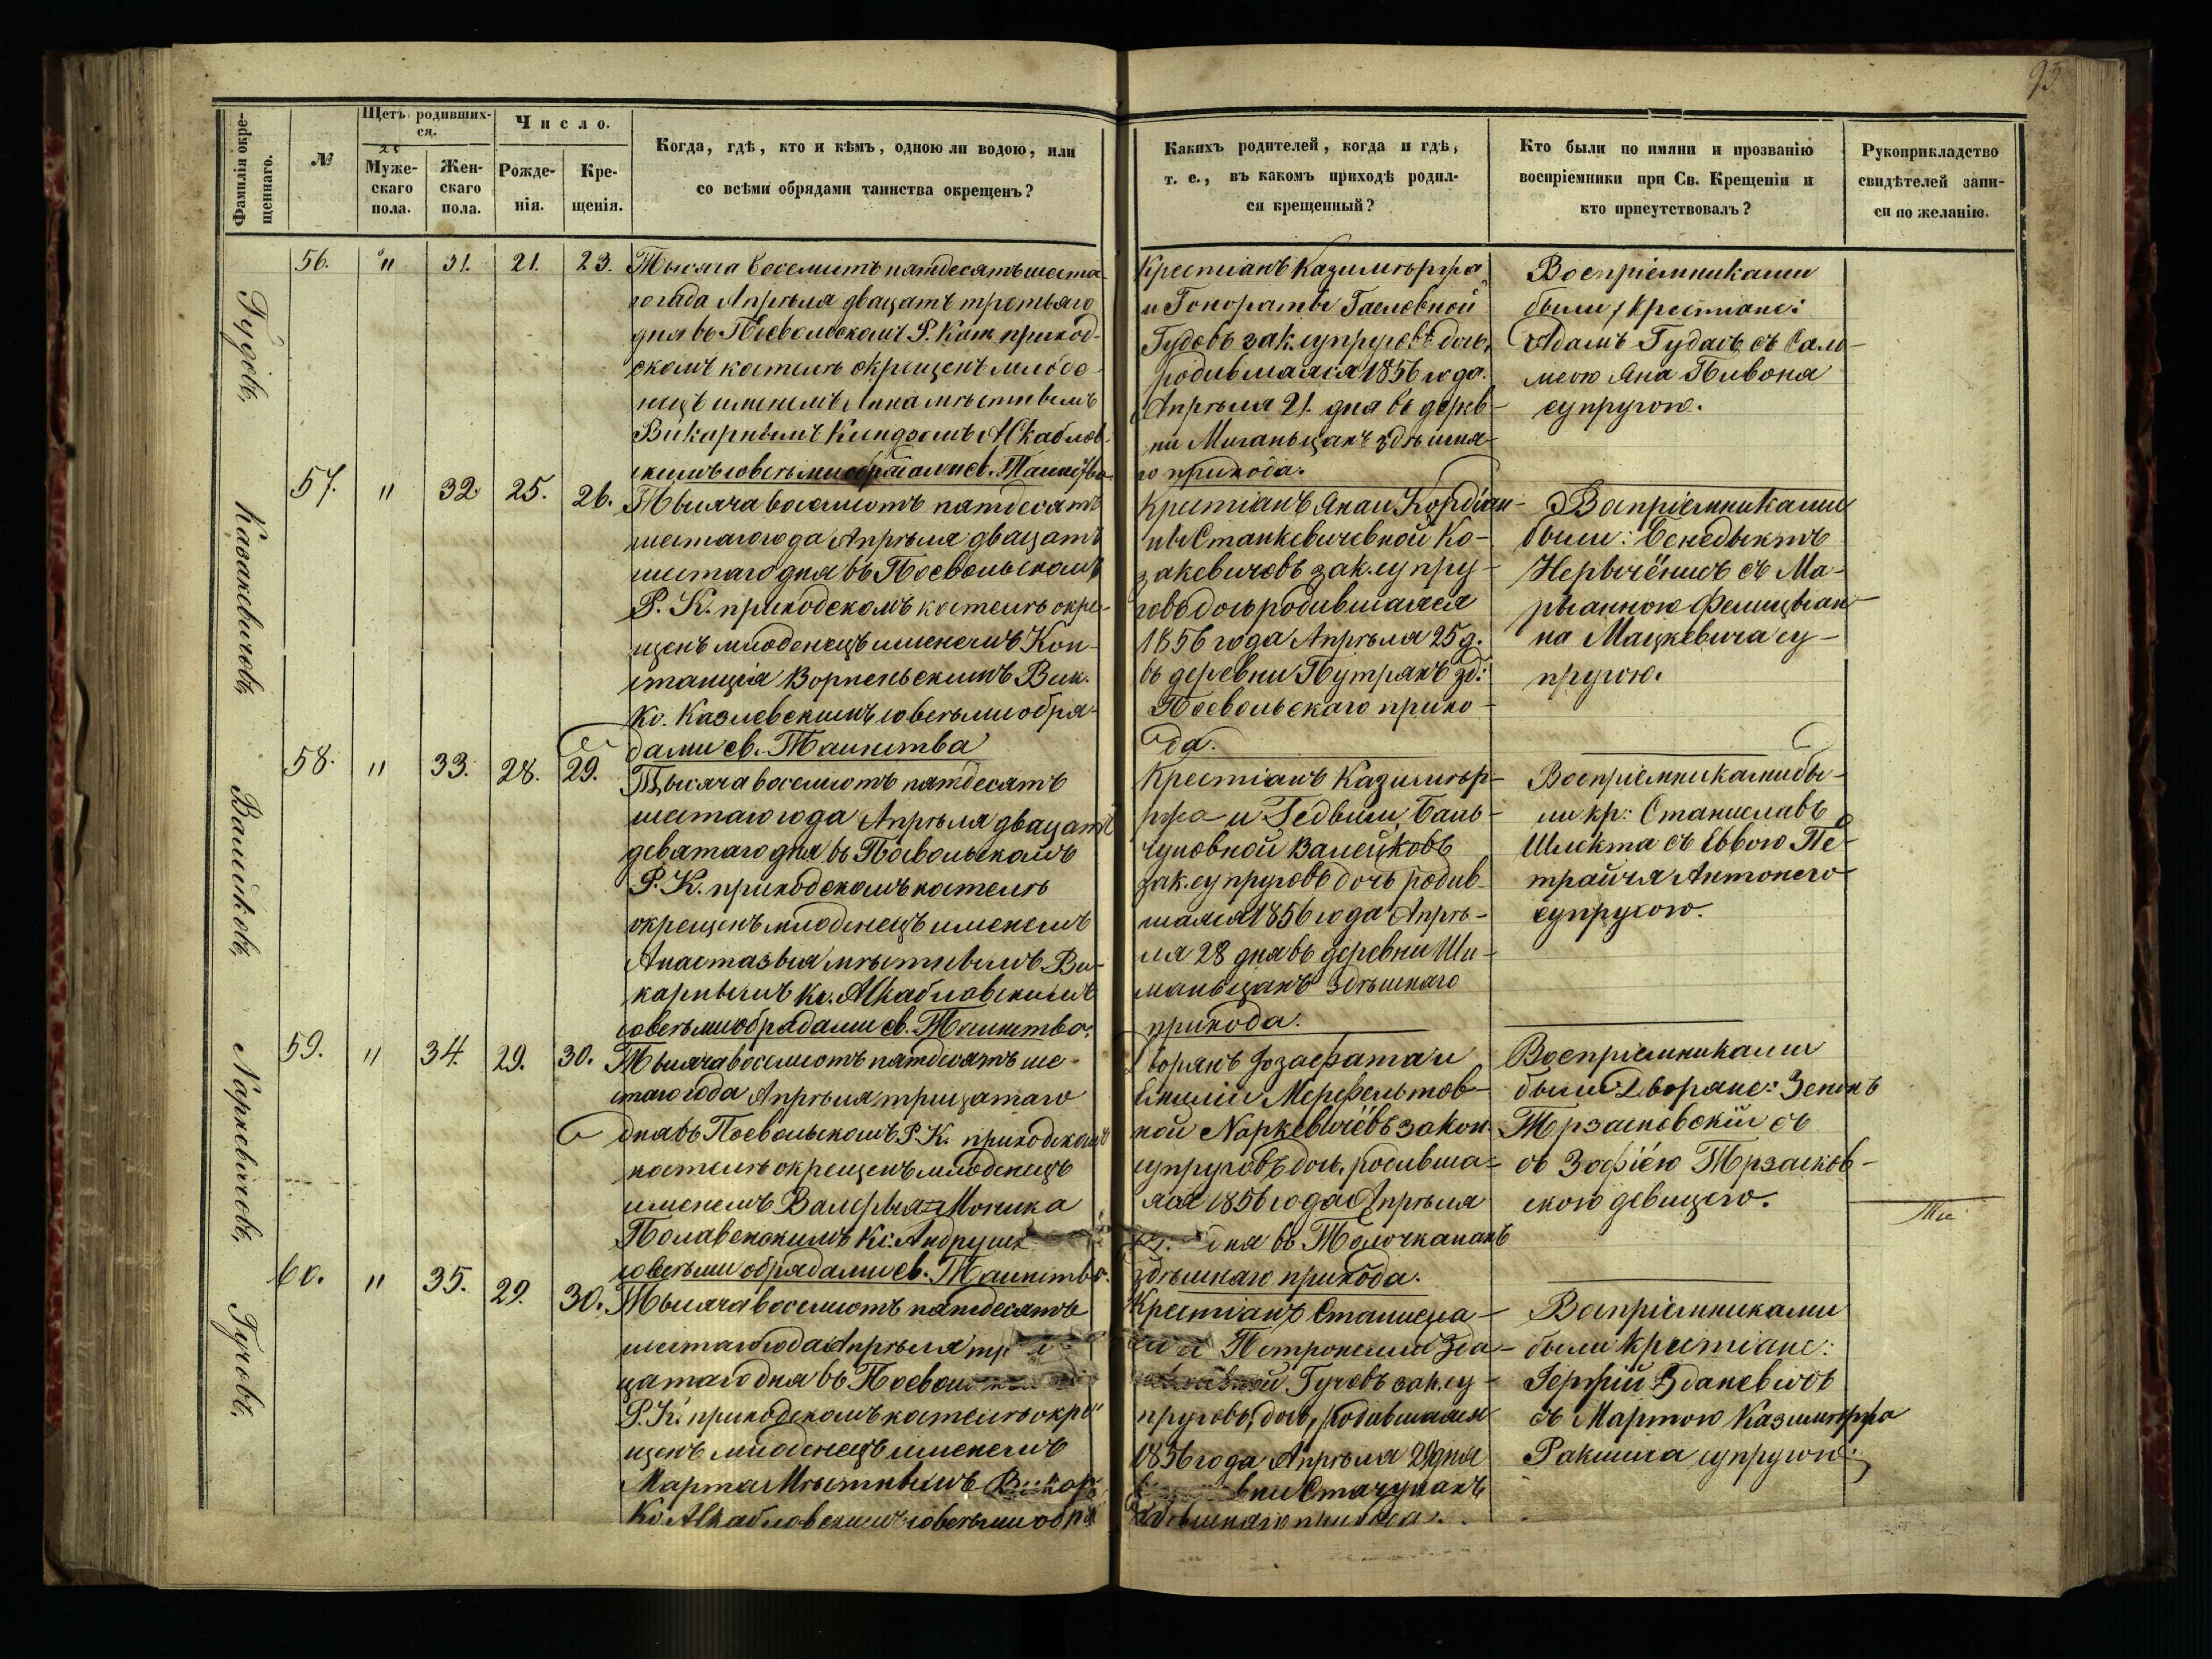 95
Фамилія окре-
щеннаго.
№
Щетъ родивших-
ся.
Муже-
скаго
пола.
Жен-
скаго
пола.
Число.
Рожде-
нія.
Кре-
щенія.
Когда, гдѣ, кто и кѣмъ, одною ли водою, или
со всѣми обрядами таинства окрещенъ?
Какихъ родителей, когда и гдѣ,
т. е., въ какомъ приходѣ родил-
ся крещенный?
Кто были по имяни и прозванію
воспріемники при Св. Крещеніи и
кто присутствовалъ?
Рукоприкладство
свидѣтелей запи-
си по желанію.
Гудовъ,
56. " 31. 21. 23.
Тысяча восемьсотъ пятдесятъ шеста-
го года Апрѣля двацать третьяго
дня въ Посвольскомъ Р. Кат. приход-
скомъ костелѣ окрещенъ младе-
нецъ именемъ Анна мѣстнымъ
Викарнымъ Ксендзомъ
со всѣми обрядами св. Таинства.
Крестіанъ Казимѣржа
и Гонораты
Гудовъ зак. супруговъ дочь,
родившаяся 1856 года.
Апрѣля 21. дня въ дерев-
ни Миганьцахъ здѣшня-
го прихода.
Воспріемниками
были, крестіане:
Адамъ Гудасъ съ Сало-
меею Яна Пивона
супругою.
Казакевичовъ,
57. " 32. 25. 26.
Тысяча восемьсотъ пятдесятъ
шестаго года Апрѣля двацать
шестаго дня въ Посвольскомъ
Р. К. приходскомъ костелѣ окре-
щенъ младенецъ именемъ Кон-
станція Ворненьскимъ Вик.
Кс. Казлевскимъ со всѣми обря-
дами св. Таинства
Крестіанъ Яна и Кордіан-
ны Станкевичевной Ко-
закевичовъ зак. супру-
говъ дочь родившаяся
1856 года Апрѣля 25 д.
въ деревни Путряхъ зд:
Посвольскаго прихо-
да.
Воспріемниками
были: Бенедыктъ
съ Ма-
рыанною Фелицыан-
на Мацкевича су-
пругою.
Валейковъ,
58. " 33. 28. 29.
Тысяча восемьсотъ пятдесятъ
шестаго года Апрѣля двацать
девятаго дня въ Посвольскомъ
Р. К. приходскомъ костелѣ
окрещенъ младенецъ именемъ
Анастазыя мѣстнымъ Ви-
карнымъ Кс.
со всѣми обрядами св. Таинства.
Крестіанъ Казимѣр-
ржа и Гедвиги Бань-
Валейковъ
зак. супруговъ дочь родив-
шаяся 1856 года Апрѣ-
ля 28 дня въ деревни Ши-
маньцахъ здѣшняго
прихода.
Воспріемниками бы-
ли кр: Станиславъ
Шлекта съ Еввою Пе-
трайтя Антонего
супругою.
Наркевичовъ,
59. " 34. 29. 30.
Тысяча восемьсотъ пятдесятъ ше-
стаго года Апрѣля трицатаго
дня въ Посвольскомъ Р. К. приходскомъ
костелѣ окрещенъ младенецъ
именемъ Валерыя-Моника
Полавенскимъ Кс.
со всѣми обрядами св. Таинства.
Дворянъ Іозафата и
Емиліи
ной Наркевичёвъ закон.
супруговъ дочь, родивша-
яся 1856 года Апрѣля
дня въ Толочканахъ
здѣшняго прихода.
Воспріемниками
были Дворяне: Зенонъ
Трзасковскій съ
съ Зофіею Трзасков-
скою девицею.
Гучовъ,
60. " 35. 29. 30.
Тысяча восемьсотъ пятдесятъ
шестаго года Апрѣля три
цатаго дня въ
Р. К. приходскомъ костелѣ окре-
щенъ младенецъ именемъ
Марта Мѣстнымъ
Кс. со всѣми обря
Крестіанъ Станисла-
Петронелии Зда-
Гучовъ зак. су-
пруговъ, дочь, родившаяся
1856 года Апрѣля 29 дня
здѣшняго прихода.
Воспріемниками
были крестіане:
Іержій Зданевичъ
съ Мартою Казимѣржа
супругою.